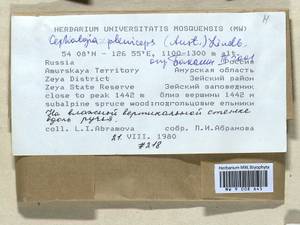 HERBARIUM UNIVERSITATIS MOSQUENSIS (MW)
Cephalozia pleniceps (Aust.) Lindb.
54 08'N - 126 55'E, 1100-1300 m alt.
Russia Россия
Amurskaya Territory Амурская область
Zeya District Зейский район
Zeya State Reserve Зейский заповедник
close to peak 1442 m близ вершины 1442 m
subalpine spruce wood: подгольцовые ельники
На влажной вертикальной стенке
вдоль ручья.
coll. L.I.Abramova собр. Л.И.Абрамова
21.VIII. 1980
#218
Herbarium MW, Bryophyta
MW 9 008 645